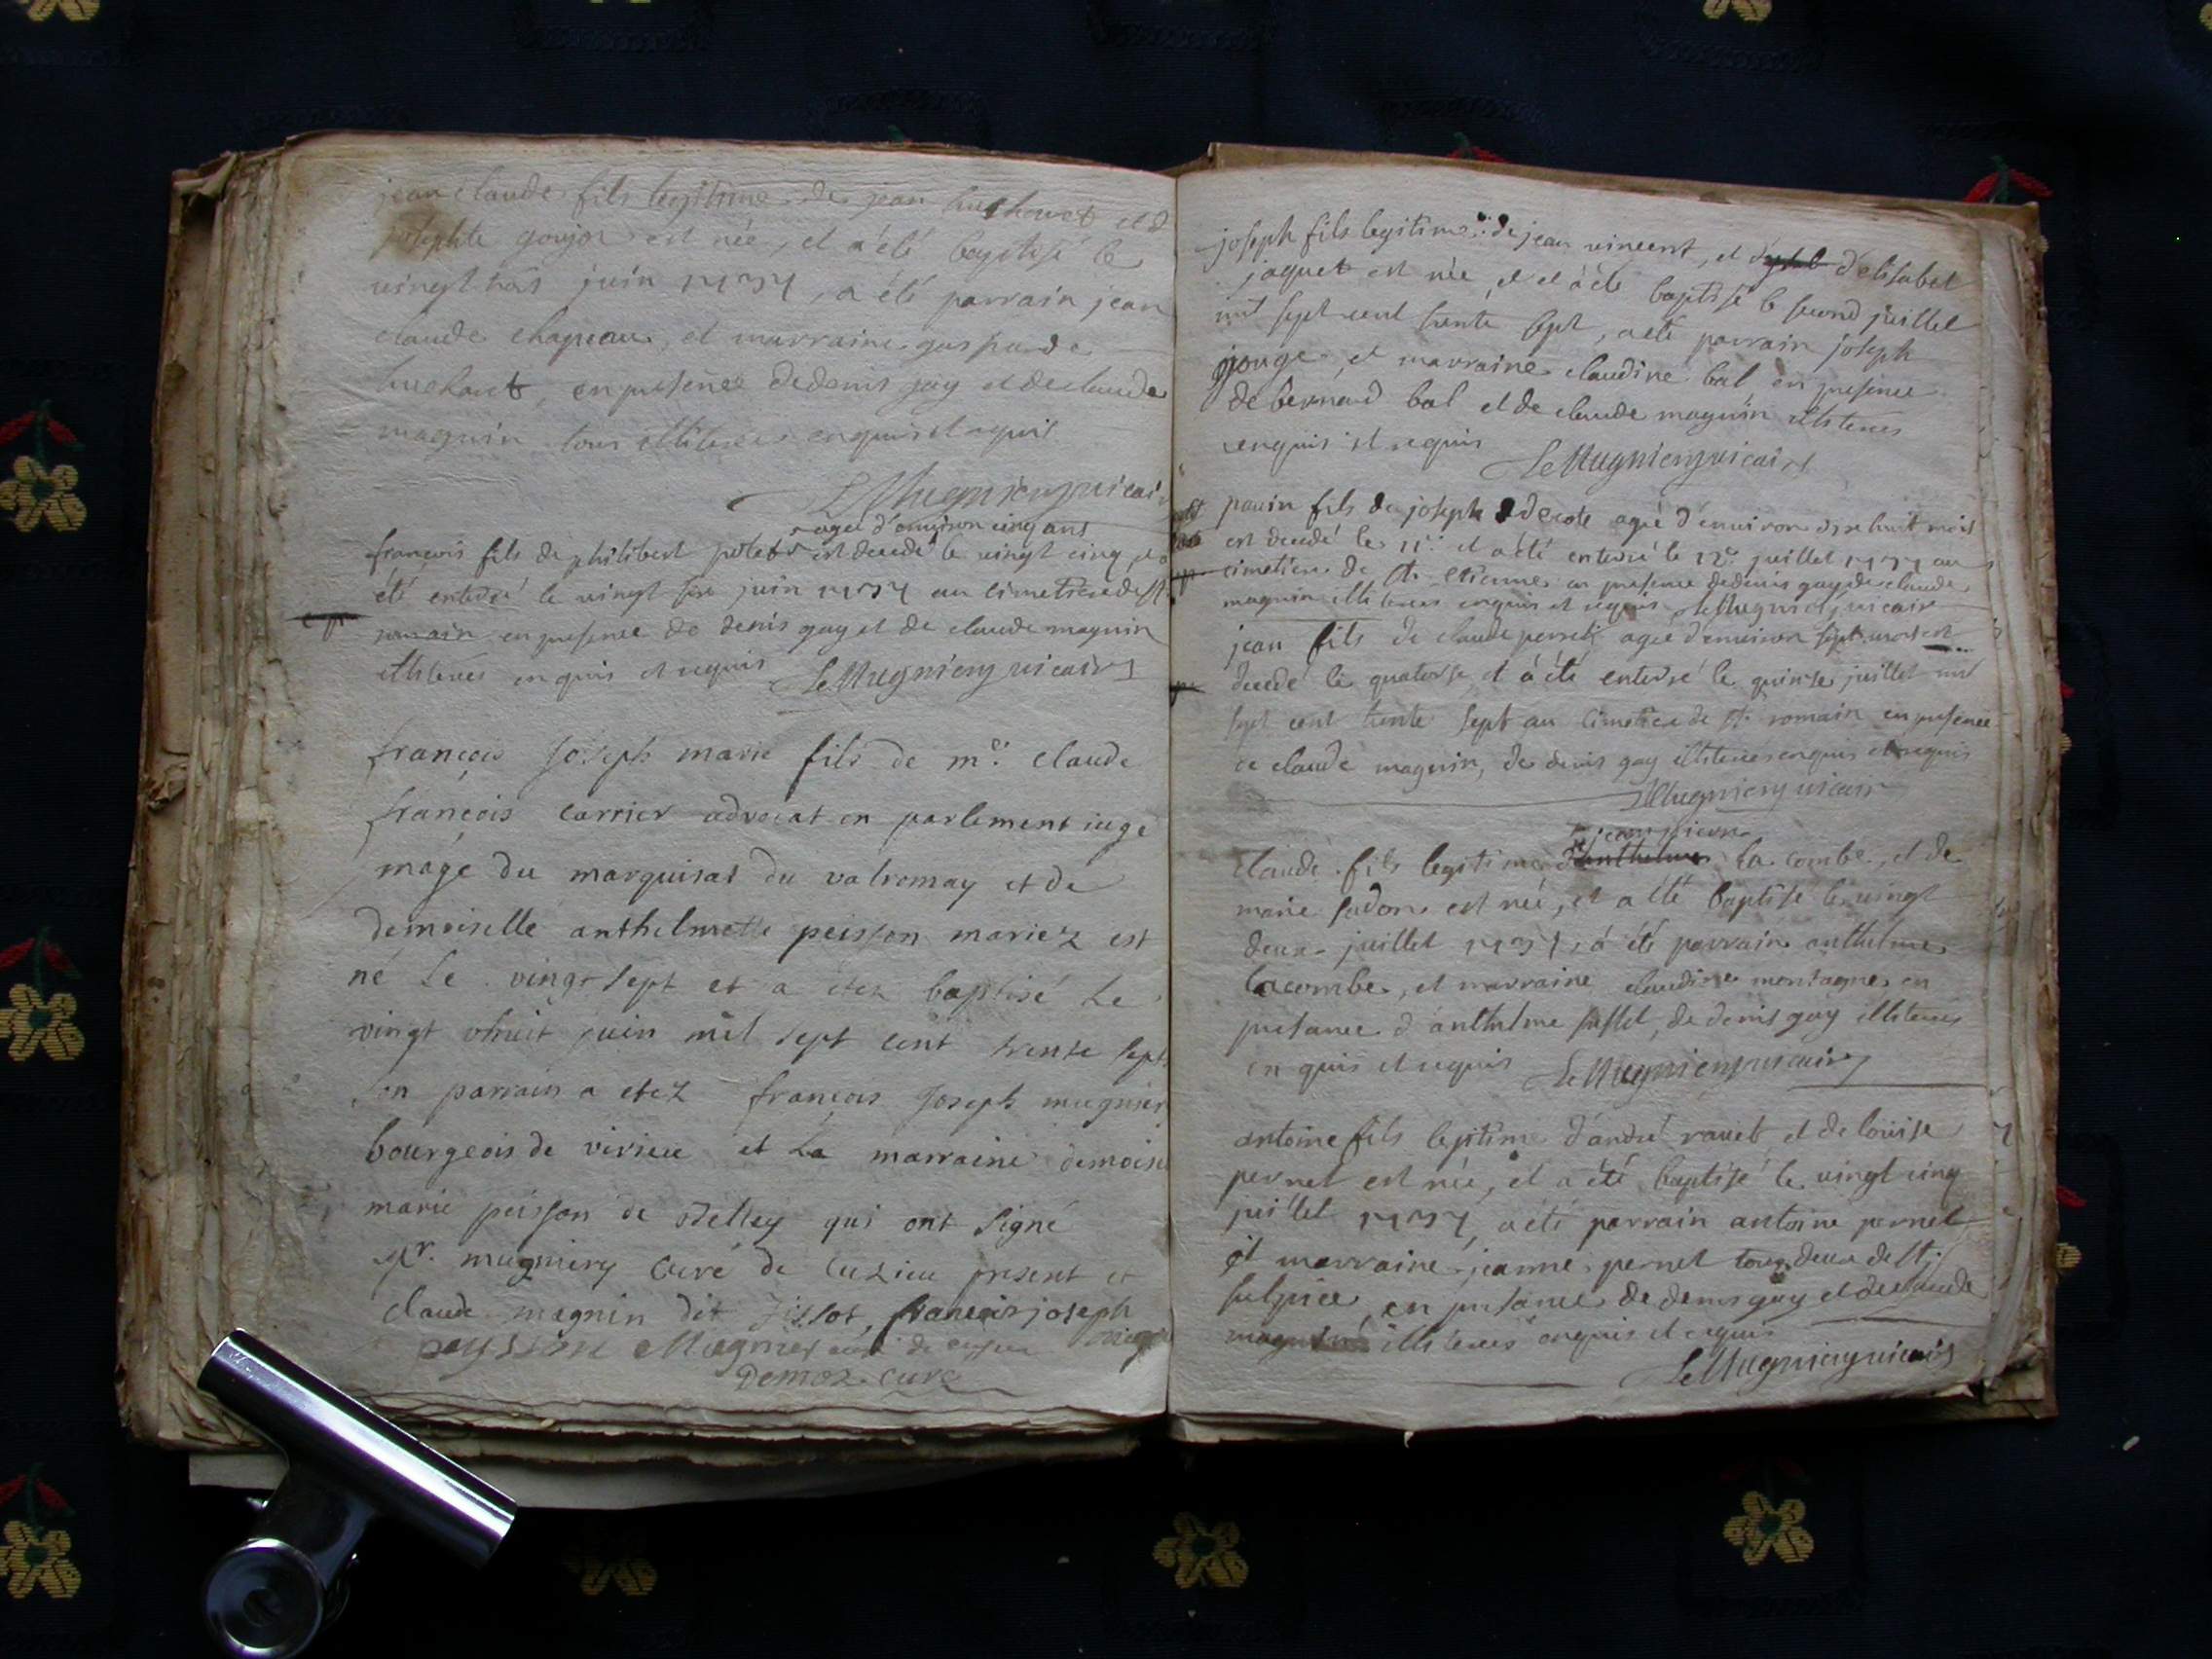 jean claude fils legitime de jean huchowet et d
josephte goujon est née, et a été baptisé le
vingt trois juin 1737, a été parrain jean
claude chapeau, et marraine gasparde
huchant, en presence de denis gay et de claude
magnin tous illiteres enquis et requis
LeMugnieryvicair
agee d'environ cinq ans
francois fils de philibert est decedé le vingt cinq, et a
été enterré le vingt six juin 1737 au cimetiere de st
romain en presence de denis gay et de claude magnin
illiteres enquis et requis LeMugniery vicaire
françois Joseph marie fils de me. claude
françois carrier advocat en parlement iuge
mage du marquisat du valromay et de
demoiselle anthelmette peisson mariez est
né le vingt sept et a etez baptisé Le
vingt vhuit juin mil sept cent trente sept
son parrain a etez françois Joseph mugnier
bourgeois de virieu et La marraine demoise
marie peisson de qui ont signé
Mr. mugniery curé de cuzieu present et
claude magnin dit françois joseph
peysson Mugnier curé de
Demoz curé
joseph fils legitime de jean vincent, et d'elisabet
jaquet est née, et et a été baptisé le second juillet
mil sept cent trente sept, a été parrain joseph
gouge, et marraine claudine bal en presence
de bernard bal et de claude magnin illiteres
enquis et requis LeMugnieryvicaire
pauin fils de joseph decote agée d'environ dix huit mois
est decedé le 11e. et a été enterré le 12e juillet 1737 au
cimetiere de st. etienne en presence de denis gay, de claude
magnin illiteres enquis et requis LeMugnieryvicaire
jean fils de claude perret agée d'environ sept mois est
decedé le quatorse, et a été enterré le quinse juillet mil
sept cent trente sept au cimetiere de st. romain en presence
de claude magnin, de denis gay illiteres enquis et requis
LeMugniery vicair
jean pierre
claude fils legitime d'anthelme la combe, et de
marie sudon est née, et a été baptisé le vingt
deux juillet 1737, a été parrain anthelme
lacombe, et marraine claudine montagne en
presance d'anthelme de denis gay illiteres
en quis et requis LeMugnieryvicaire
antoine fils legitime d'andré ravet et de loüise
pernet est née, et a été baptisé le vingt cinq
juillet 1737, a été parrain antoine pernet
et marraine jeanne pernet tous deux de st.
sulpice, en presance de denis gay et de claude
magnin illiteres enquis et requis
LeMugnieryvicaire